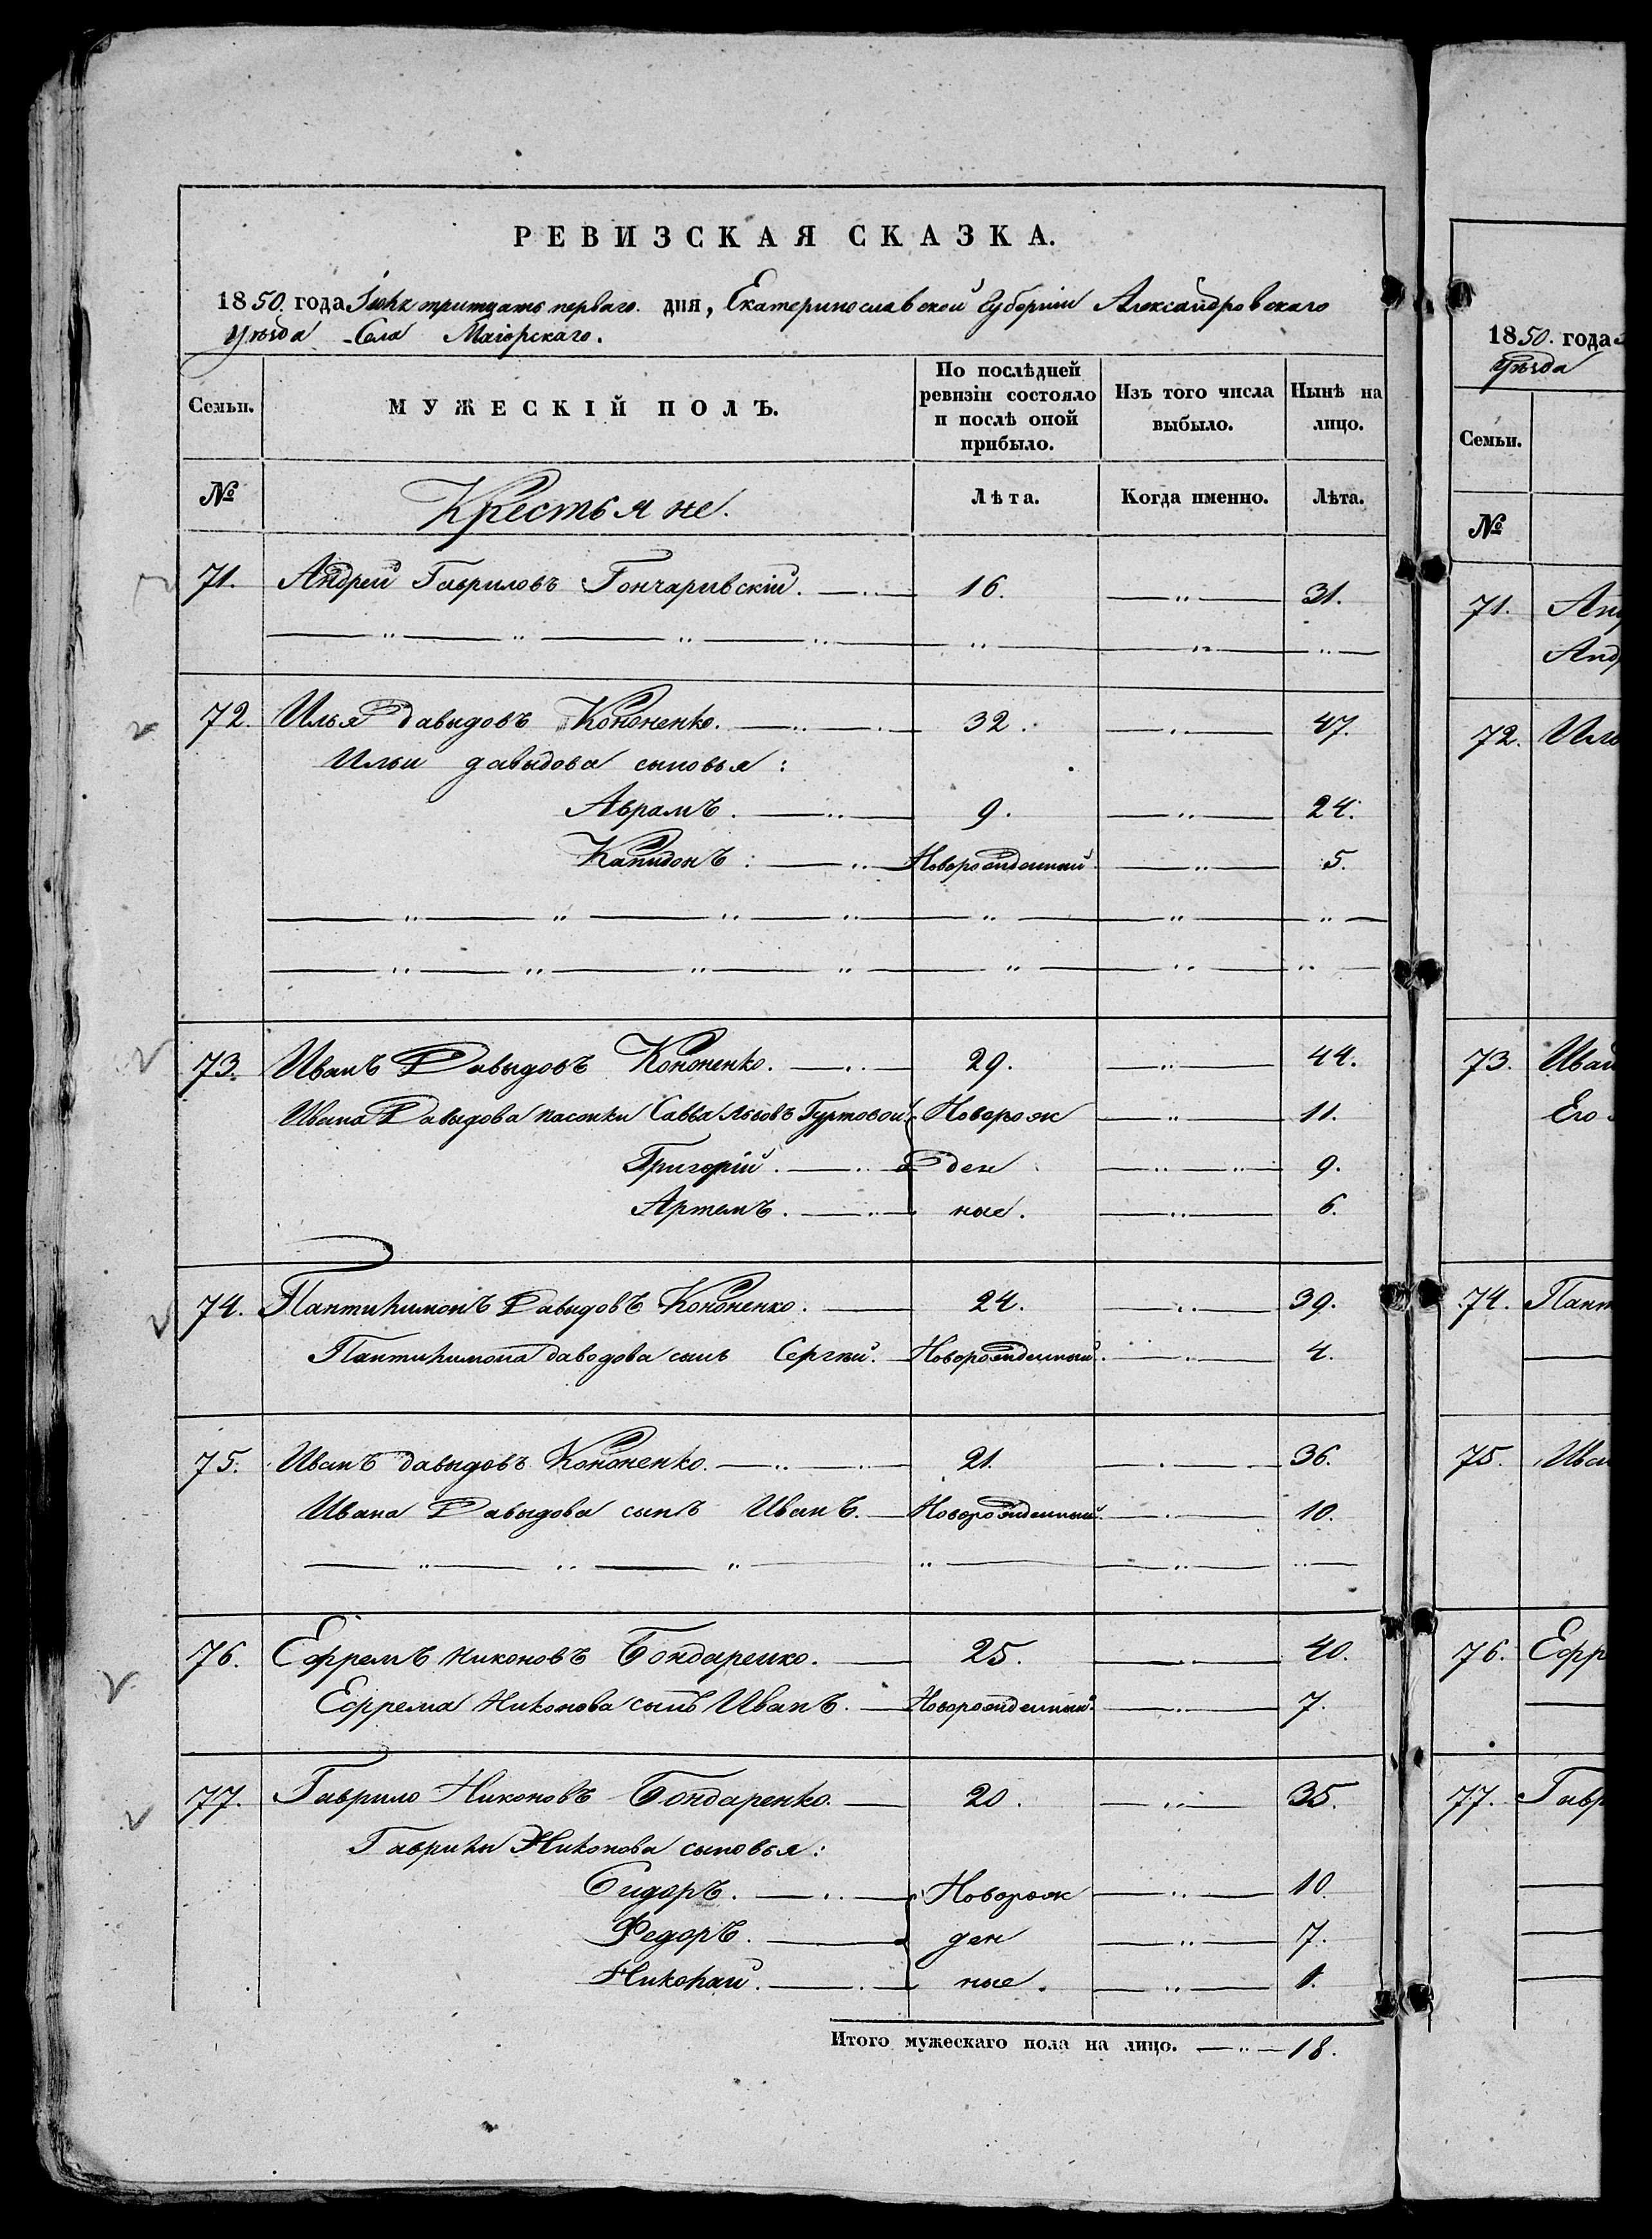 РЕВИЗСКАЯ СКАЗКА.
1850. года Іюля тритцать перваго. дня, Екатеринославской Губерніи Александровскаго
уѣзда Села Маіорскаго.
Семьи. МУЖЕСКІЙ ПОЛЪ. По послѣдней ревизіи состояло и послѣ оной прибыло. Изъ того числа выбыло. Нынѣ на лицо.
№ Крестьяне. Лѣта. Когда именно. Лѣта.
71. Андрей Гавриловъ Гончаривскій. 16. 31.
72. Илья Давыдовъ Кононенко. 32. 47.
Ильи давыдова сыновья:
Аврамъ. 9. 24.
Капидонъ: Новорожденный 5.
73. Иванъ Давыдовъ Кононенко. 29. 44.
Ивана Давыдова пасынки Савва Львовъ Гуртовой. Новорож 11.
Григорій. ден 9.
Артемъ. ные. 6.
74. Пантилимонъ Давыдовъ Кононенко. 24. 39.
Пантилимона Даводова сынъ Сергѣй. Новорожденный. 4.
75. Иванъ давыдовъ Кононенко. 21. 36.
Ивана Давыдова сынъ Иванъ. Новорожденный. 10.
76. Ефремъ Никоновъ Бондаренко. 25. 40.
Ефрема Никонова сынъ Иванъ. Новорожденный. 7.
77. Гаврило Никоновъ Бондаренко. 20. 35.
Гаврилы Никонова сыновья:
Сидоръ. Новорож 10.
Федоръ. ден 7.
Николай. ные. 1.
Итого мужескаго пола на лицо. 18.
1850. года
уѣзда
Семьи.
№
71.
72.
73.
Его
74.
75.
76.
77.